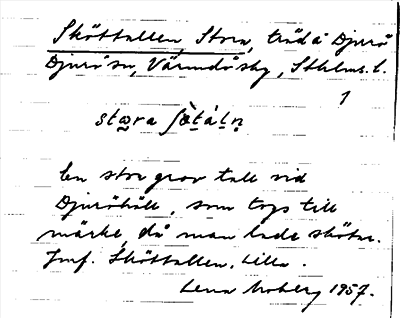 Sköttallen, Stora, träd å Djurö
Djurö sn, Värmdö skg, Sthlms l.
1
stœra ʃœ̀tál̥n̥
En stor grov tall vid
Djuröhäll, som togs till
märke, då man lade skötar.
Jmf. Sköttallen, Lilla.
Lena Moberg 1957.